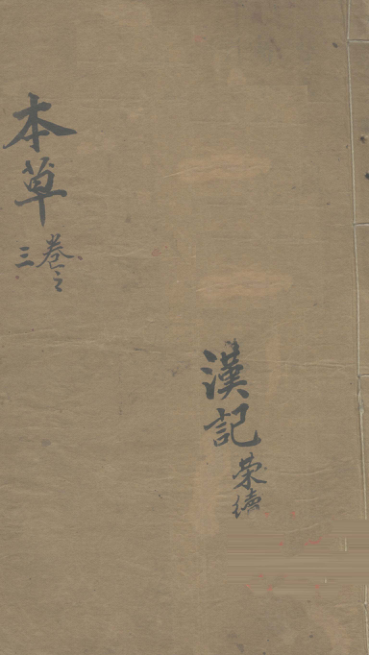 本草
卷之三
漢記
榮續